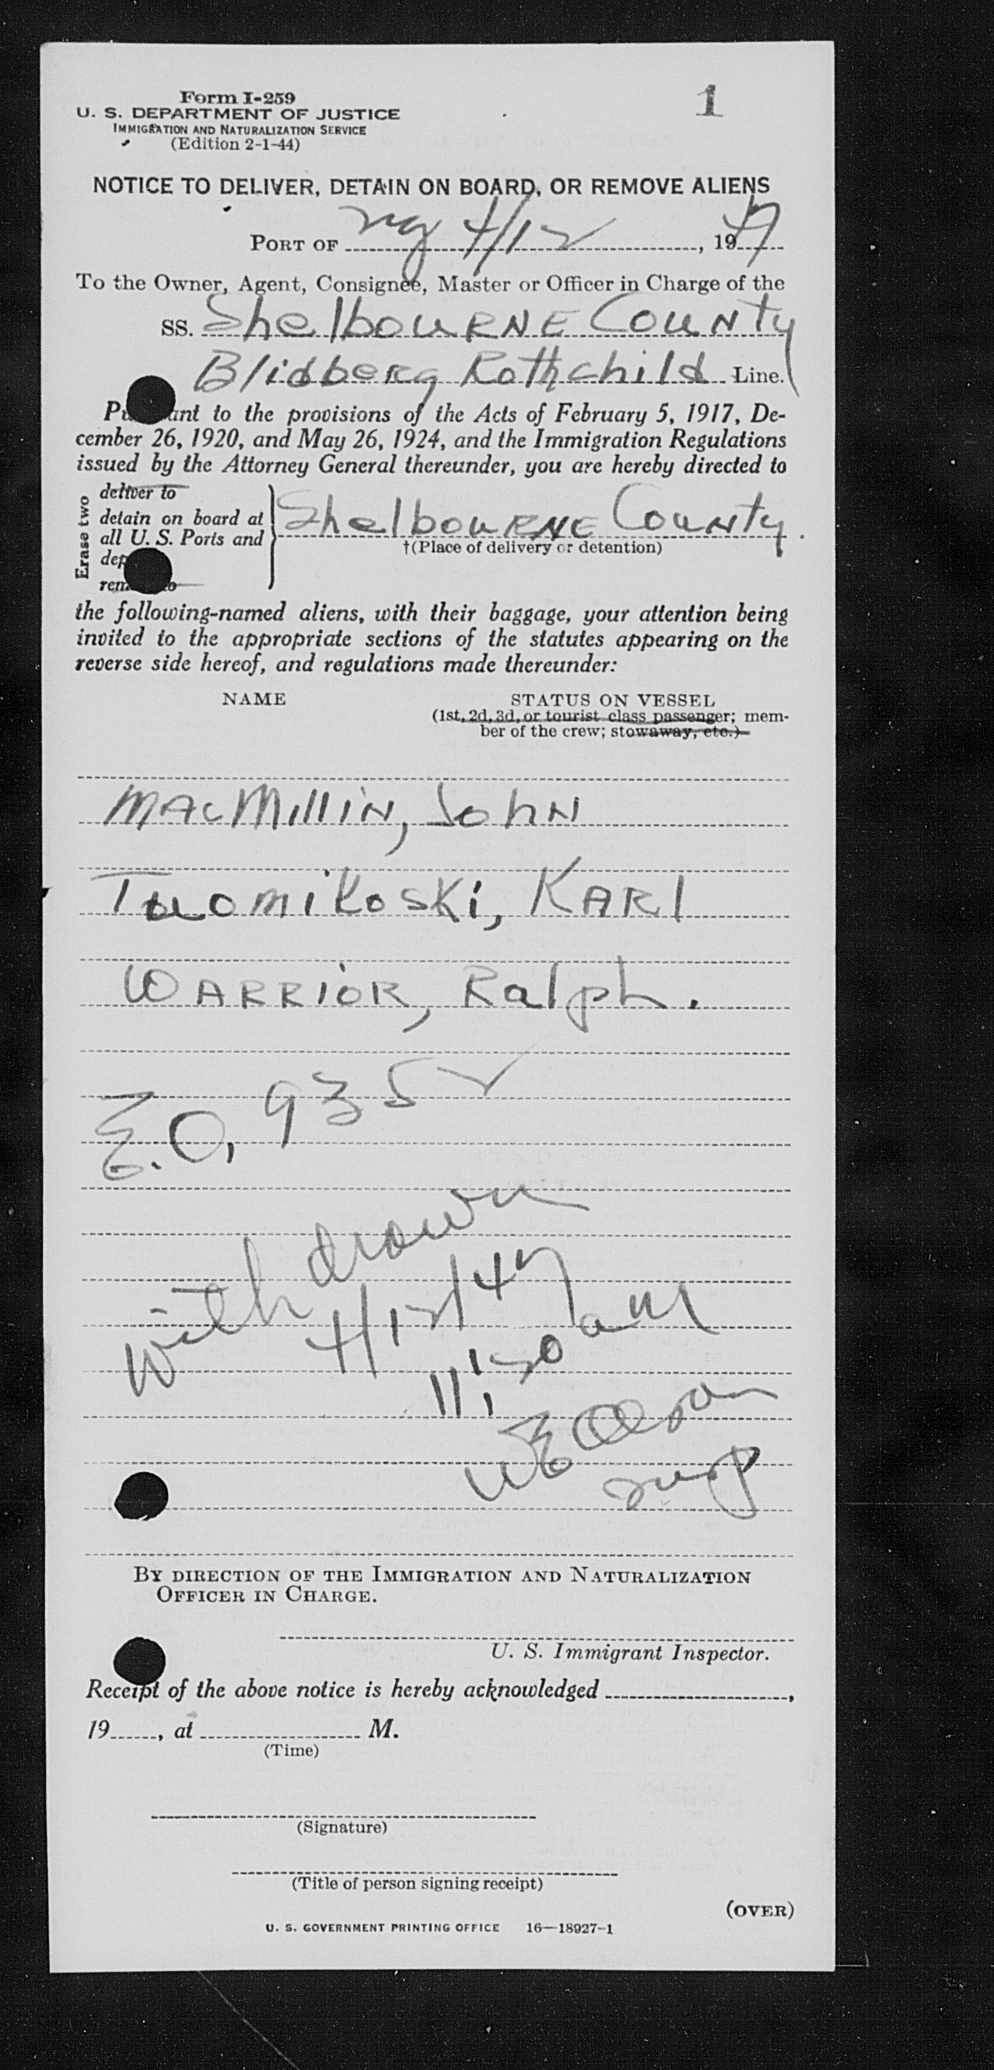 1
Form I-259
U. S. DEPARTMENT OF JUSTICE
IMMIGRATION AND NATURALIZATION SERVICE
(Edition 2-1-44)
NOTICE TO DELIVER, DETAIN ON BOARD, OR REMOVE ALIENS
PORT OF NY 4/12, 1947
To the Owner, Agent, Consignee, Master or Officer in Charge of the
SS. Shelbourne County
Blidberg Rothchild Line.
Pursuant to the provisions of the Acts of February 5, 1917, De-
cember 26, 1920, and May 26, 1924, and the Immigration Regulations
issued by the Attorney General thereunder, you are hereby directed to
Erase two
deliver to
detain on board at
all U. S. Ports and
Shelbourne County.
†(Place of delivery or detention)
the following-named aliens, with their baggage, your attention being
invited to the appropriate sections of the statutes appearing on the
reverse side hereof, and regulations made thereunder:
NAME STATUS ON VESSEL
(1st, 2d, 3d, or tourist class passenger; mem-
ber of the crew; stowaway, etc.)
MacMillin, John
Tuomikoski, Karl
Warrior, Ralph.
E.O, 9352
withdrawn
4/12/47
11:50 am
WE Olson
BY DIRECTION OF THE IMMIGRATION AND NATURALIZATION
OFFICER IN CHARGE.
U. S. Immigrant Inspector.
Receipt of the above notice is hereby acknowledged ,
19 , at M.
(Time)
(Signature)
(Title of person signing receipt)
(OVER)
U. S. GOVERNMENT PRINTING OFFICE 16—18927-1